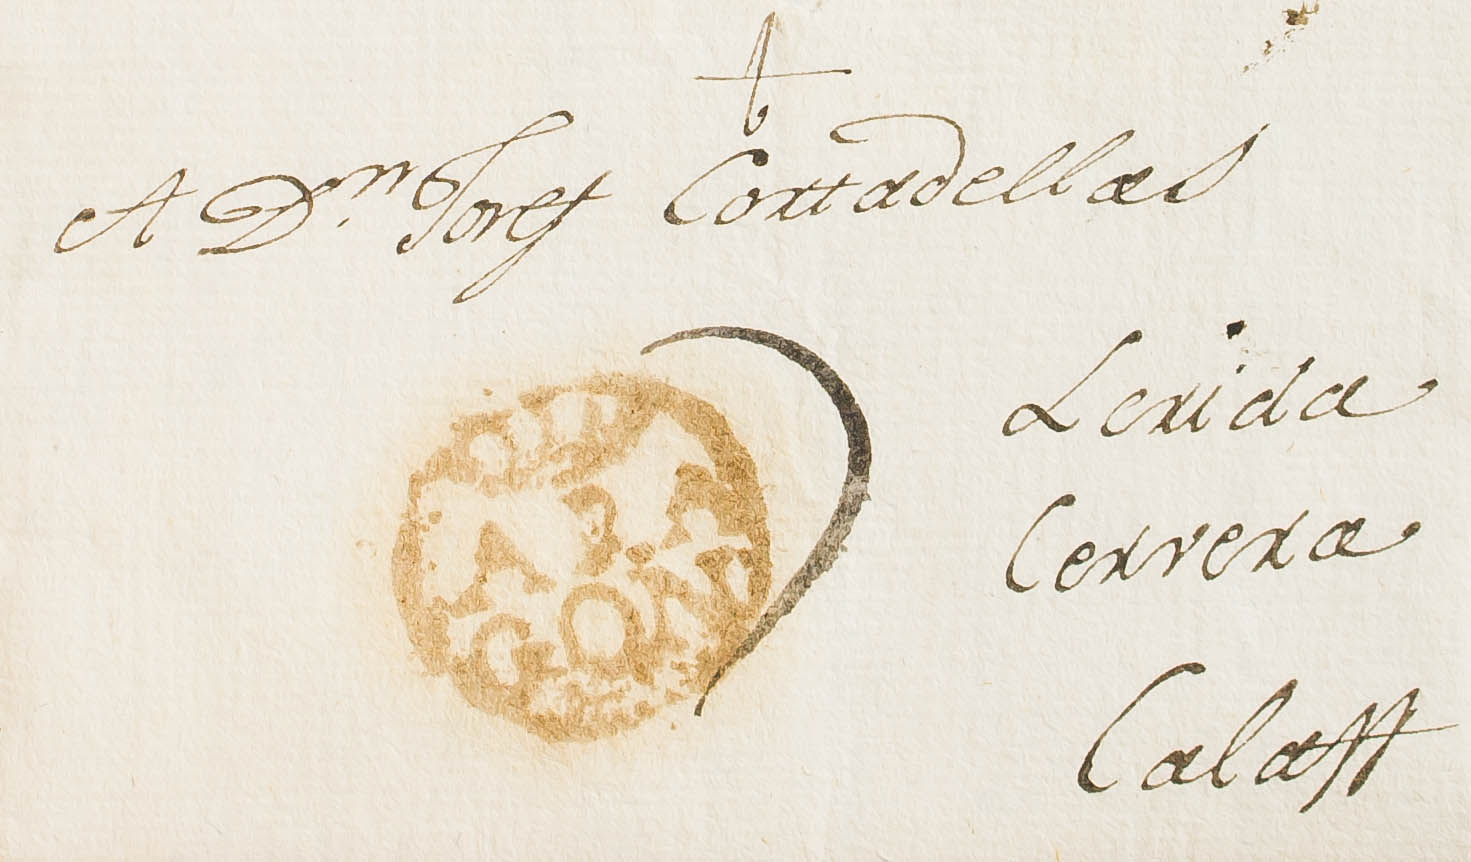 A Dn. Josef Cortadellas
ARA
GON
Lerida
Cervera
Calaff